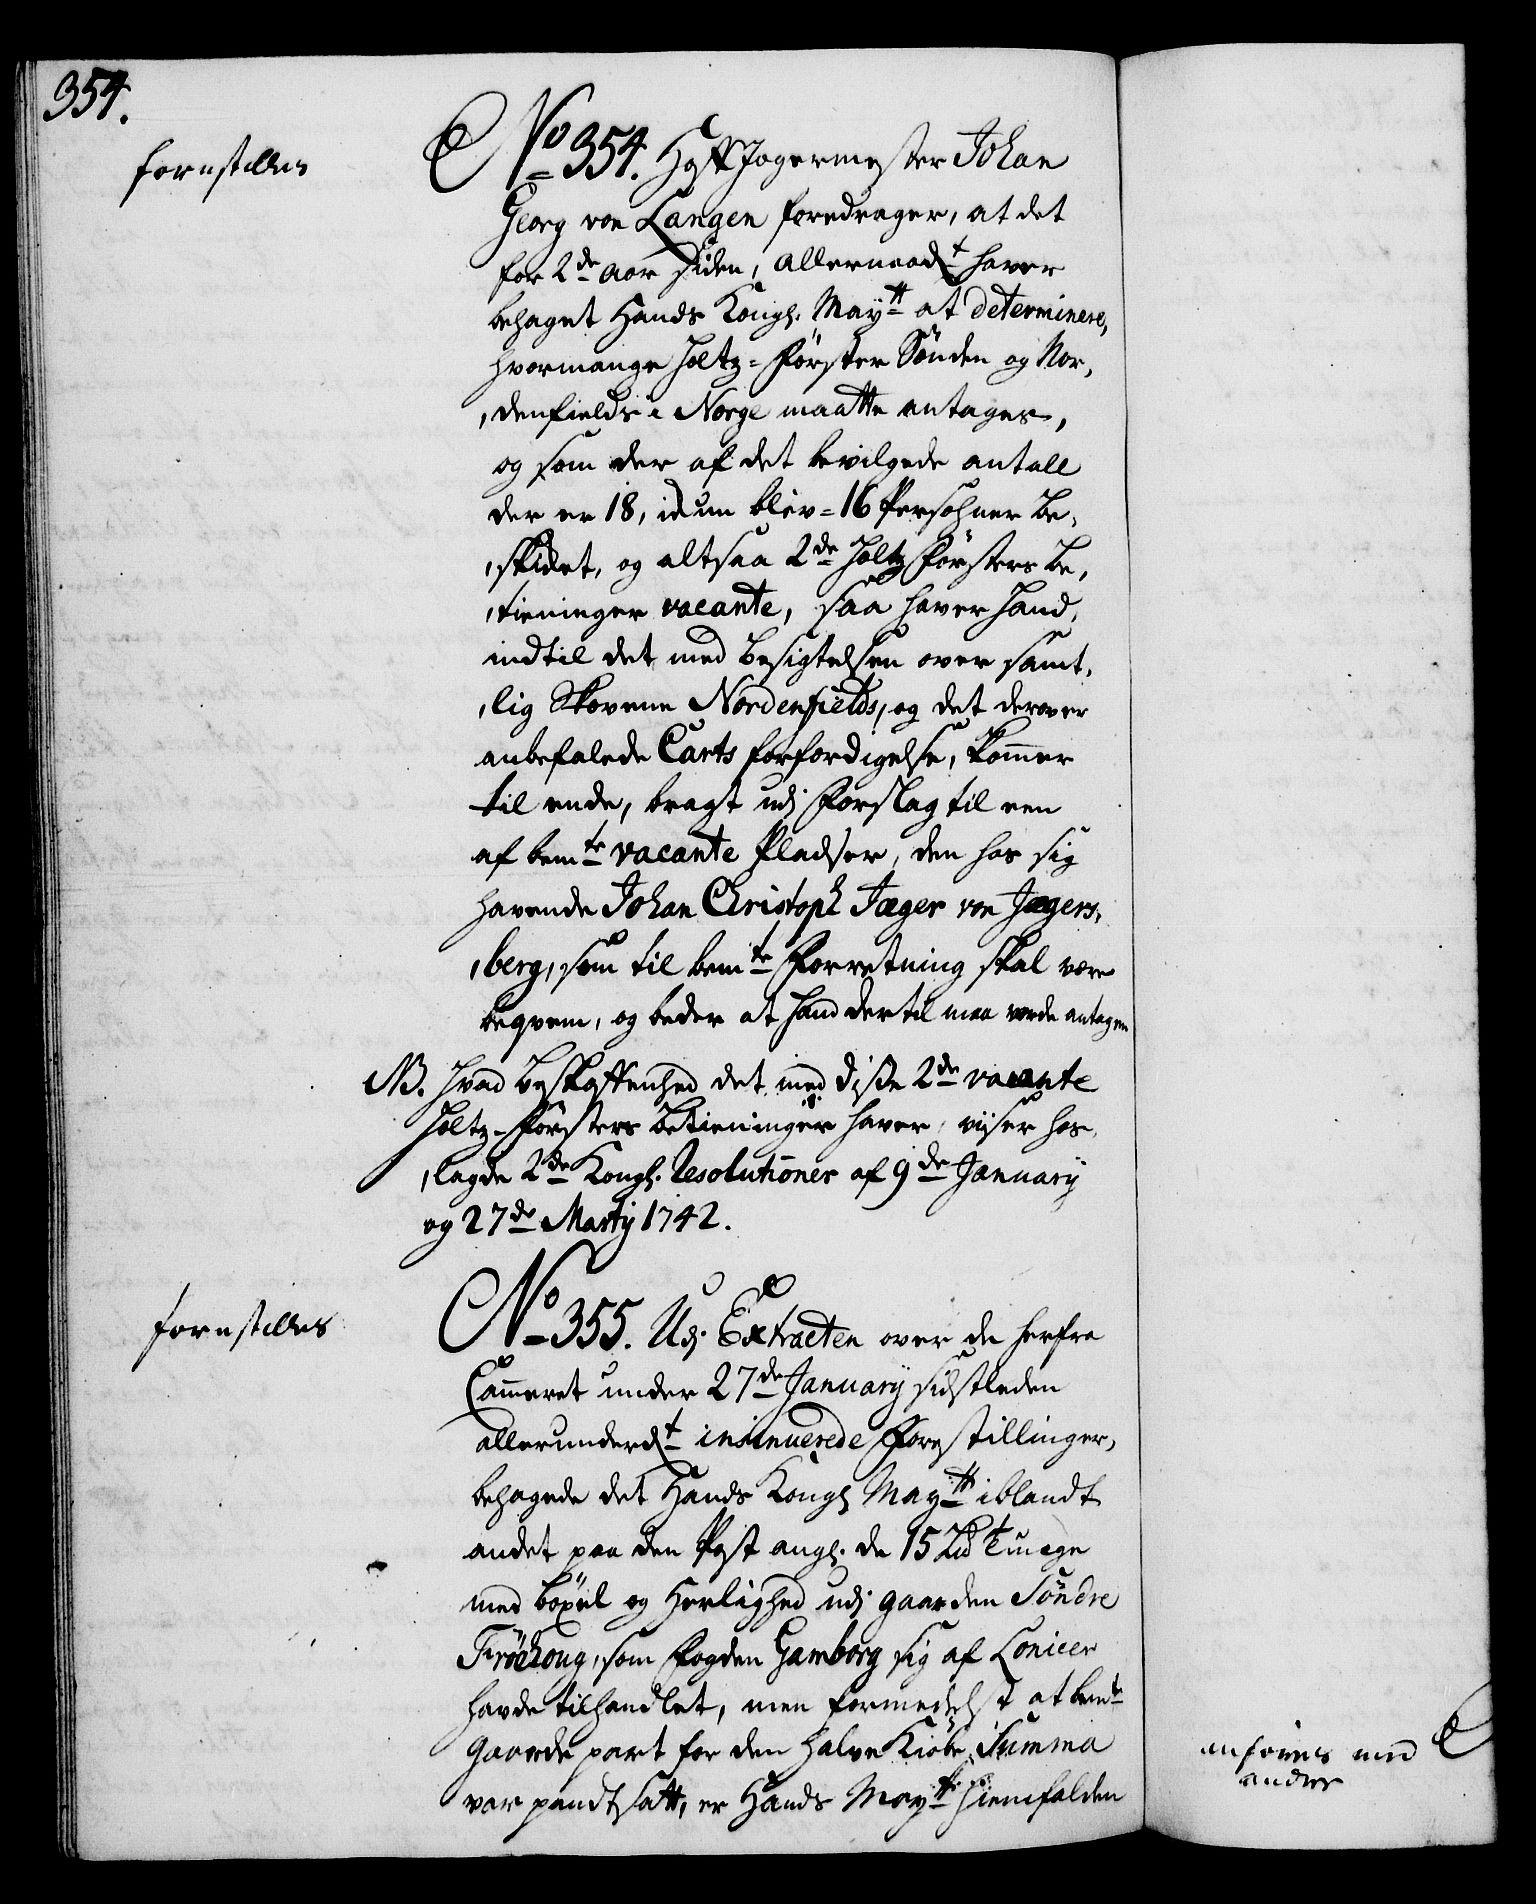 354.
forestilles
No 354. Hoff Jægermester Johan
Georg von Langen foredrager, at det
for 2de Aar siden, allernaadt haver
behaget Hands Kongl. Maytt at determinere,
hvormange Holtz-Förster Sönden og Nor,
,denfields i Norge maatte antages,
og som der af det bevilgede antall
der er 18, ickun blev 16 Persohner be,
,skicket, og altsaa 2de Holtz Försters be,
,tieninger vacante, saa haver Hand,
indtil det med besigtelsen over samt,
,lig Skovene Nordenfields, og det derover
anbefalede Carts forfærdigelse, kommer
til ende, bragt udj Forslag til een
af bemte vacante Pladser, den hos sig
havende Johan Christoph Jæger von Jægers,
,berg, som til bemte Forretning skal være
beqvem, og beder at Hand dertil maa vorde antagen
NB. Hvad beskaffenhed det med disse 2de vacante
Holtz-Försters betieninger haver, viiser hos,
,lagde 2de Kongl. Resolutioner af 9de January
og 27de Martij 1742.
forestilles
No 355. Udj Extracten over de herfra
Cammeret under 27de January sidstleden
allerunderdt insinuerede Forestillinger,
behagede det Hands Kongl Maytt iblandt
andet paa den Post angl. de 15 Lid Tunge
med böxel og Herlighed udj gaarden Söndre
Fröehoug, som Fogden Gamborg sig af Lonicer
havde tilhandlet, men formedelst at bemte
Gaarde part for den halve Kiöbe Summa
var pandtsatt, er Hands Maytt hiemfalden
anföres med
andre